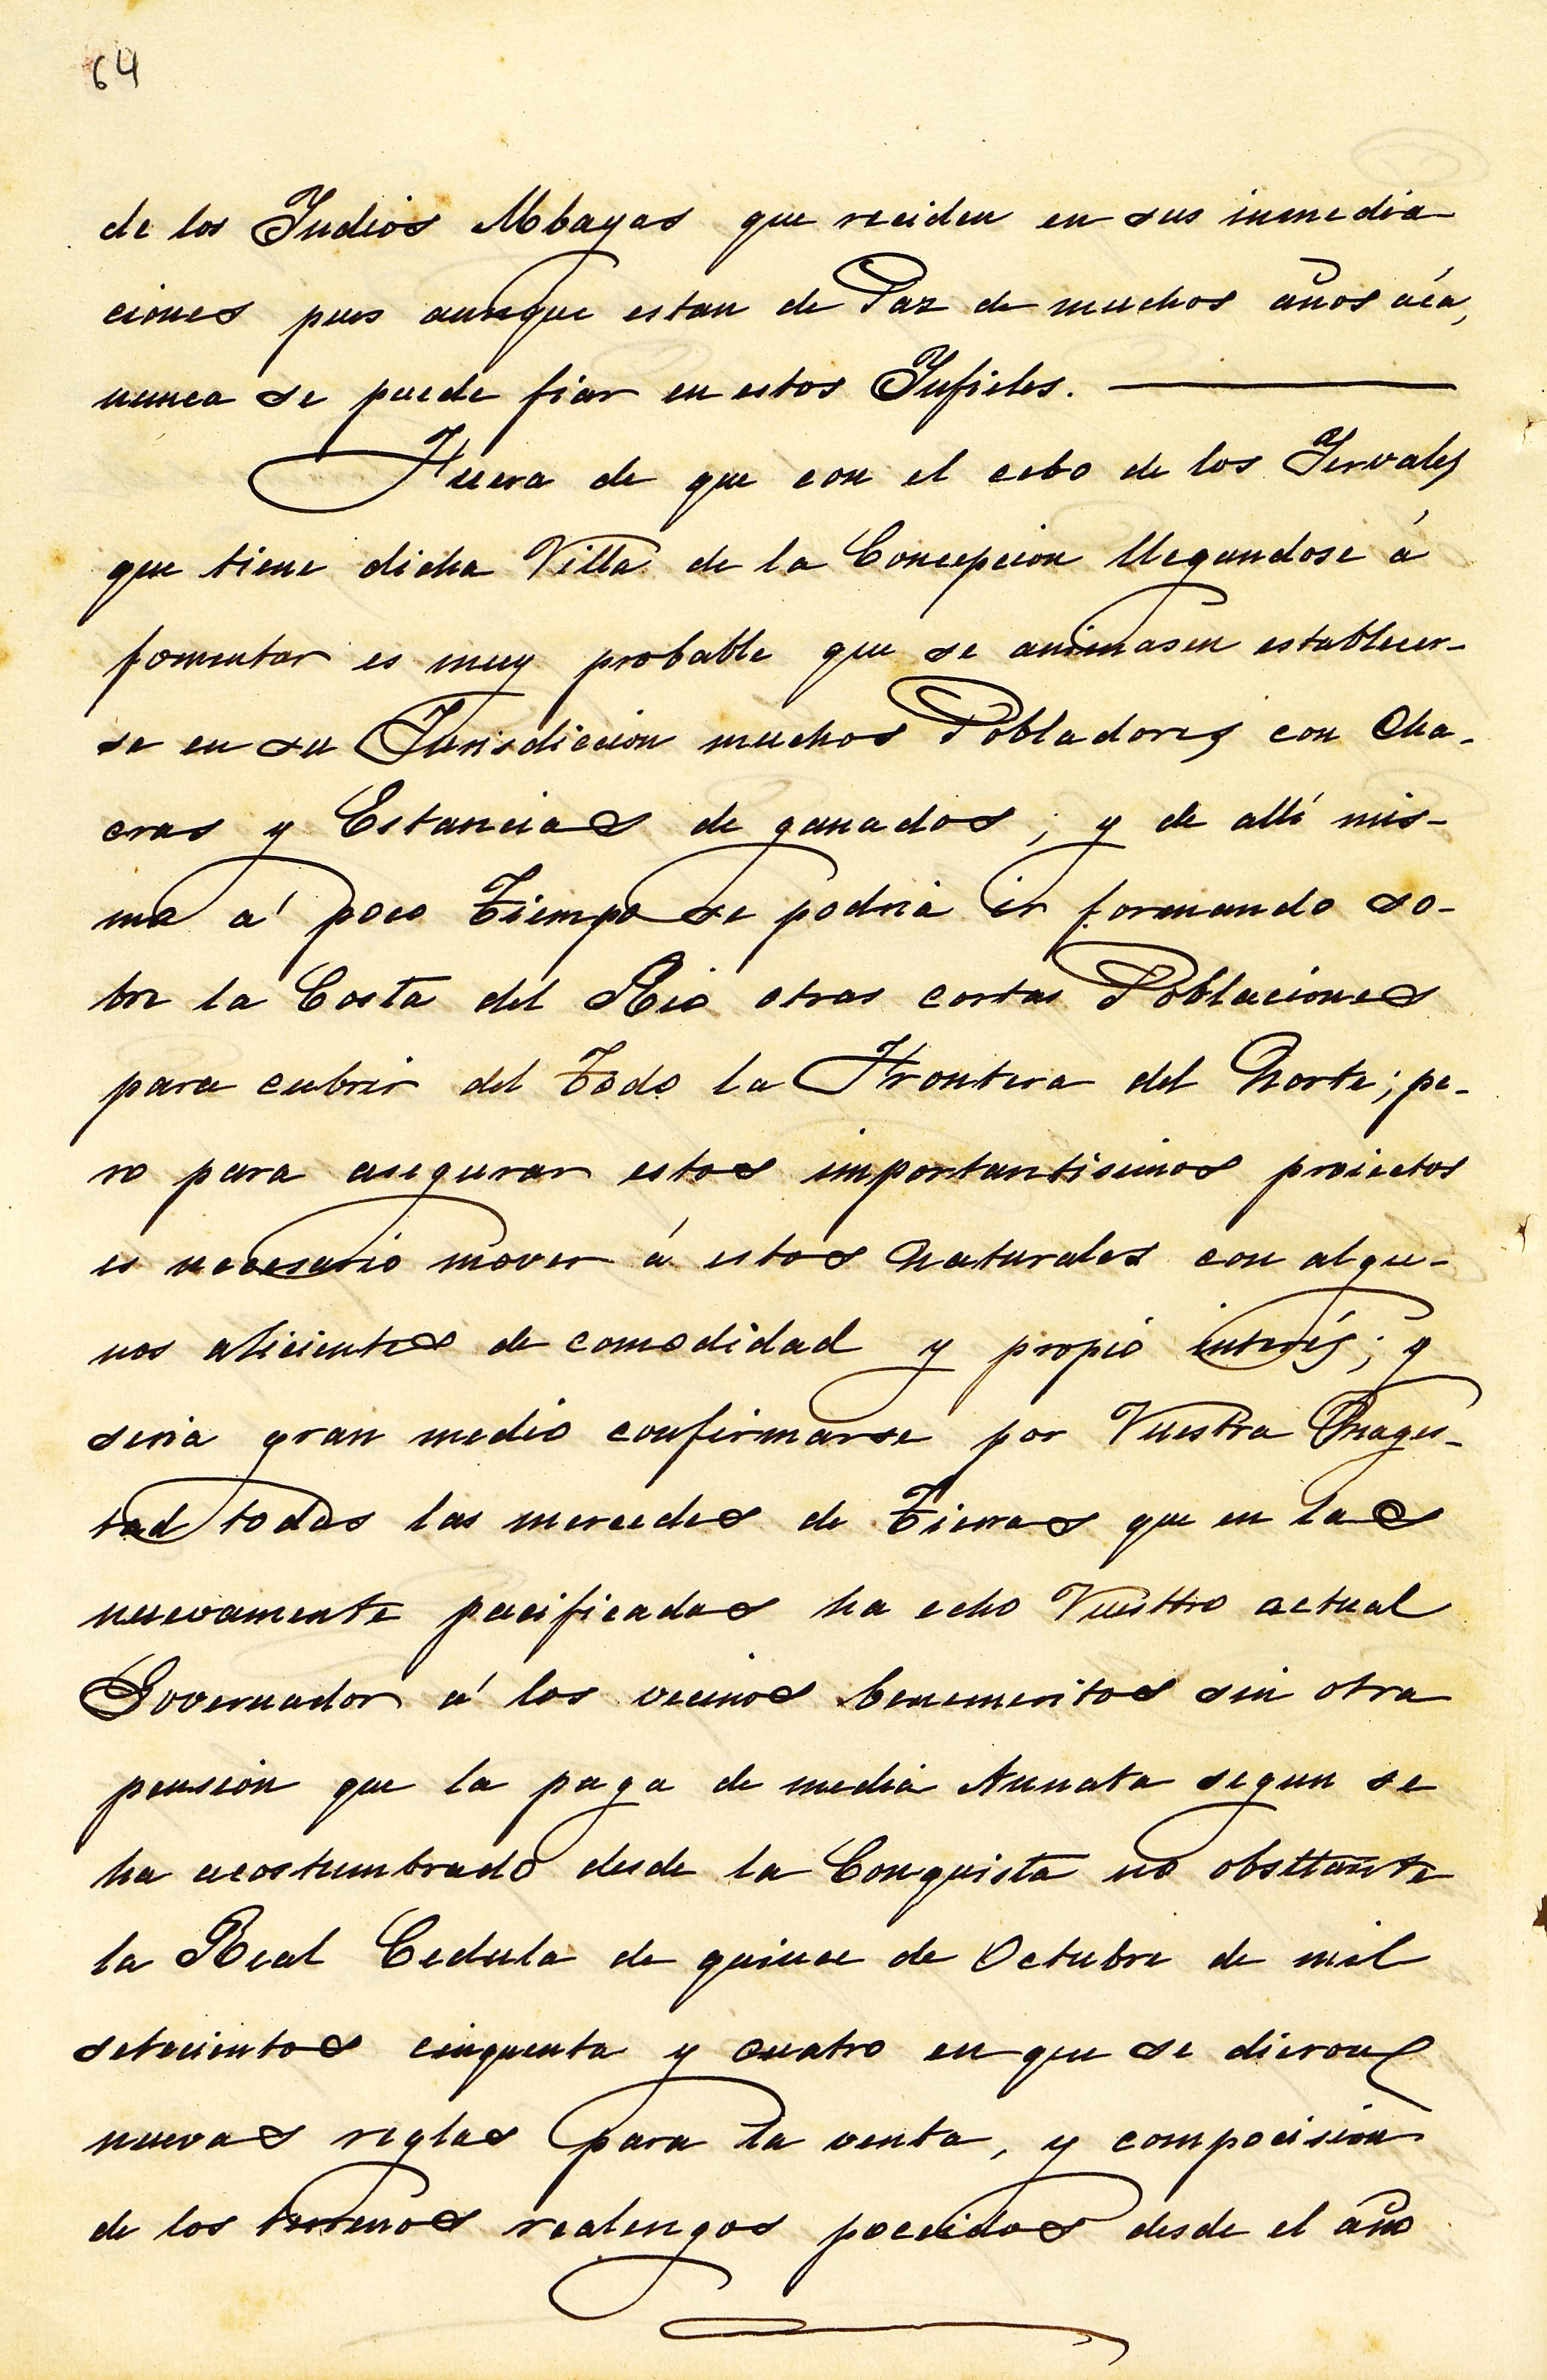 64
de los Yndios Mbayas que reciden en sus inmedia
ciones pues aunque estan de Paz de muchos años acá,
nunca se puede fiar en estos Ynfieles.
Fuera de que con el cebo de los Yervales
que tiene dicha Villa de la Concepcion llegandose á
fomentar es muy probable que se animasen establecer-
se en su Jurisdiccion muchos Pobladores con Cha-
cras y Estancias de ganados; y de allí mis-
mo á poco Tiempo se podria ir formando so-
bre la Costa del Rio otras cortas Poblaciones
para cubrir del Todo la Frontera del Norte; pe-
ro para asegurar estos importantisimos proiectos
es necesario mover á estos Naturales con algu-
nos alicientes de comodidad y propio interés; y
seria gran medio confirmarse por Vuestra Mages-
tad todas las mercedes de Tierras que en las
nuevamente pacificadas ha echo Vuesttro actual
Governador á los vecinos benemeritos sin otra
pension que la paga de media Annata segun se
ha acostumbrado desde la Conquista no obsttante
la Real Cedula de quince de Octubre de mil
setecientos cinquenta y cuatro en que se dieron
nuevas reglas para la venta, y composicion
de los terrenos realengos poceidos desde el año